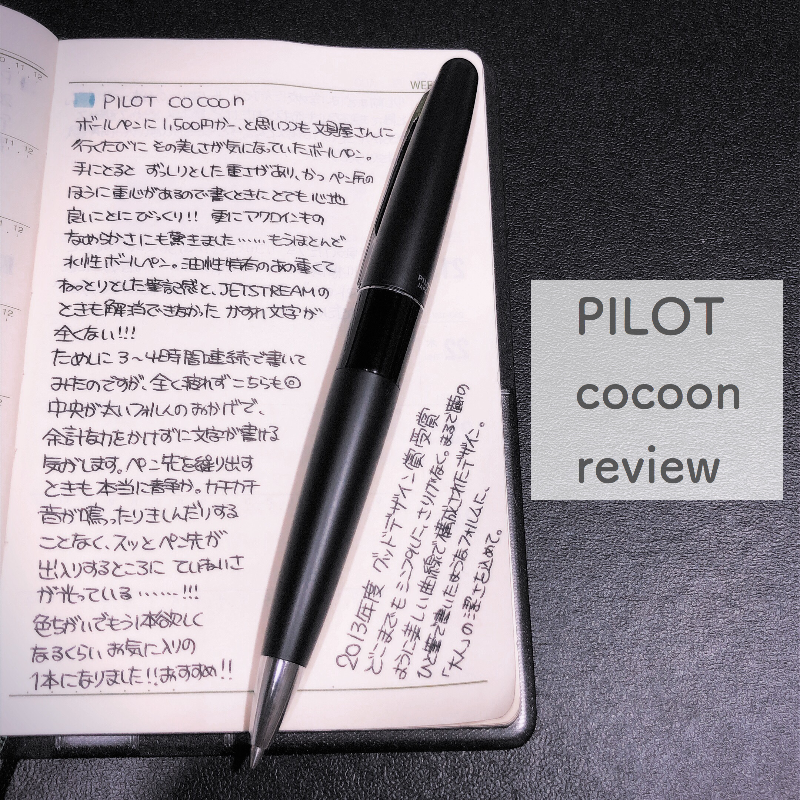 WEE
PILOT cocoon
ボールペンに1,500円かー、と思いつつも文具屋さんに
行くたびに その美しさが気になっていたボールペン。
手にとると ずっしりとした重さがあり、かつ ペン尻の
ほうに重心があるので書くときにとても心地
良いことにびっくり!! 更にアクロインキの
なめらかさにも驚きました……もうほとんど
水性ボールペン。油性特有のあの重くて
ねっとりとした筆記感と、JETSTREAMの
ときも解消できなかった かすれ文字が
全くない!!!
ためしに 3〜4時間連続で書いて
みたのですが、全く疲れず こちらも◎
中央が太いフォルムのおかげで、
余計な力をかけずに文字が書ける
気がします。ペン先を繰り出す
ときも本当に静か。カチカチ
音が鳴ったりきしんだりする
ことなく、スッとペン先が
出入りするところに ていねいさ
が光っている……!!!
色ちがいでもう1本欲しく
なるくらい お気に入りの
1本になりました!!おすすめ!!
2013年度 グッドデザイン賞受賞
どこまでもシンプルに、さりげなく。まるで繭の
ように美しい曲線で構成されたデザイン。
ひと筆で書いたようなフォルムに、
「大人」の潔さを込めて。
PILOT
cocoon
review